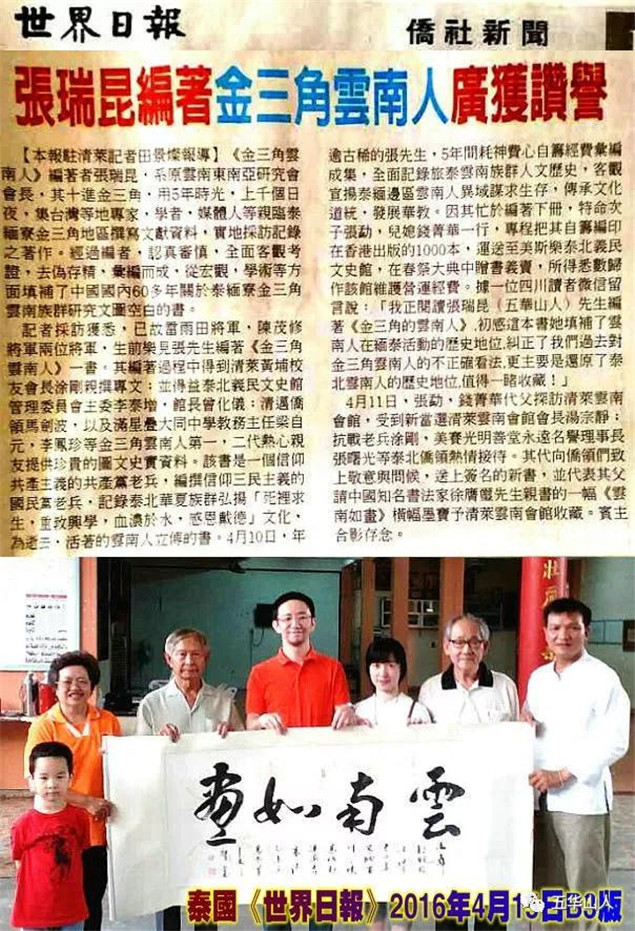 世界日報
僑社新聞
張瑞昆編著金三角雲南人廣獲讚譽
【本報駐清萊記者田景燦報導】《金三角雲
南人》編著者張瑞昆，系原雲南東南亞研究會
會長，其十進金三角，用5年時光，上千個日
夜，集台灣等地專家，學者，媒體人等親臨泰
緬寮金三角地區撰寫文獻資料，實地採訪記錄
之著作。經過編者，認真審慎，全面客觀考
證，去偽存精，彙編而成，從宏觀，學術等方
面填補了中國國內60多年關於泰緬寮金三角
雲南族群研究文圖空白的書。
記者採訪獲悉，已故雷雨田將軍，陳茂修
將軍兩位將軍，生前樂見張先生編著《金三角
雲南人》一書。其編著過程中得到清萊黃埔校
友會長涂剛親撰專文；並得益泰北義民文史館
管理委員會主委李泰增，館長曾化儀；清邁僑
領馬劍波，以及滿星疊大同中學教務主任梁自
元，李鳳珍等金三角雲南人第一，二代熱心親
友提供珍貴的圖文史實資料。該書是一個信仰
共產主義的共產黨老兵，編撰信仰三民主義的
國民黨老兵，記錄泰北華夏族群弘揚「死裡求
生，重教興學，血濃於水，感恩戴德」文化，
為逝去，活著的雲南人立傳的書。4月10日，年
逾古稀的張先生，5年間耗神費心自籌經費彙編
成集，全面記錄旅泰雲南族群人文歷史，客觀
宣揚泰緬邊區雲南人異域謀求生存，傳承文化
道統，發展華教。因其忙於編著下冊，特命次
子張勐，兒媳錢菁華一行，專程把其自籌編印
在香港出版的1000本，運送至美斯樂泰北義民
文史館，在春祭大典中贈書義賣，所得悉數歸
作該館維護營運經費。據一位四川讀者微信留
言說：「我正閱讀張瑞昆（五華山人）先生編
著《金三角的雲南人》，初感這本書她填補了雲
南人在緬泰活動的歷史地位，糾正了我們過去對
金三角雲南人的不正確看法，更主要是還原了泰
北雲南人的歷史地位，值得一睹收藏！」
4月11日，張勐，錢菁華代父探訪清萊雲南
會館，受到新當選清萊雲南會館會長湯宗靜；
抗戰老兵涂剛，美賽光明善堂永遠名譽理事長
張曙光等泰北僑領熱情接待。其代向僑領們致
上敬意與問候，送上簽名的新書，並代表其父
請中國知名書法家徐廣璽先生親書的一幅《雲
南如畫》橫幅墨寶予清萊雲南會館收藏。賓主
合影存念。
雲南如畫
泰國《世界日報》2016年4月15日B9版
五华山人